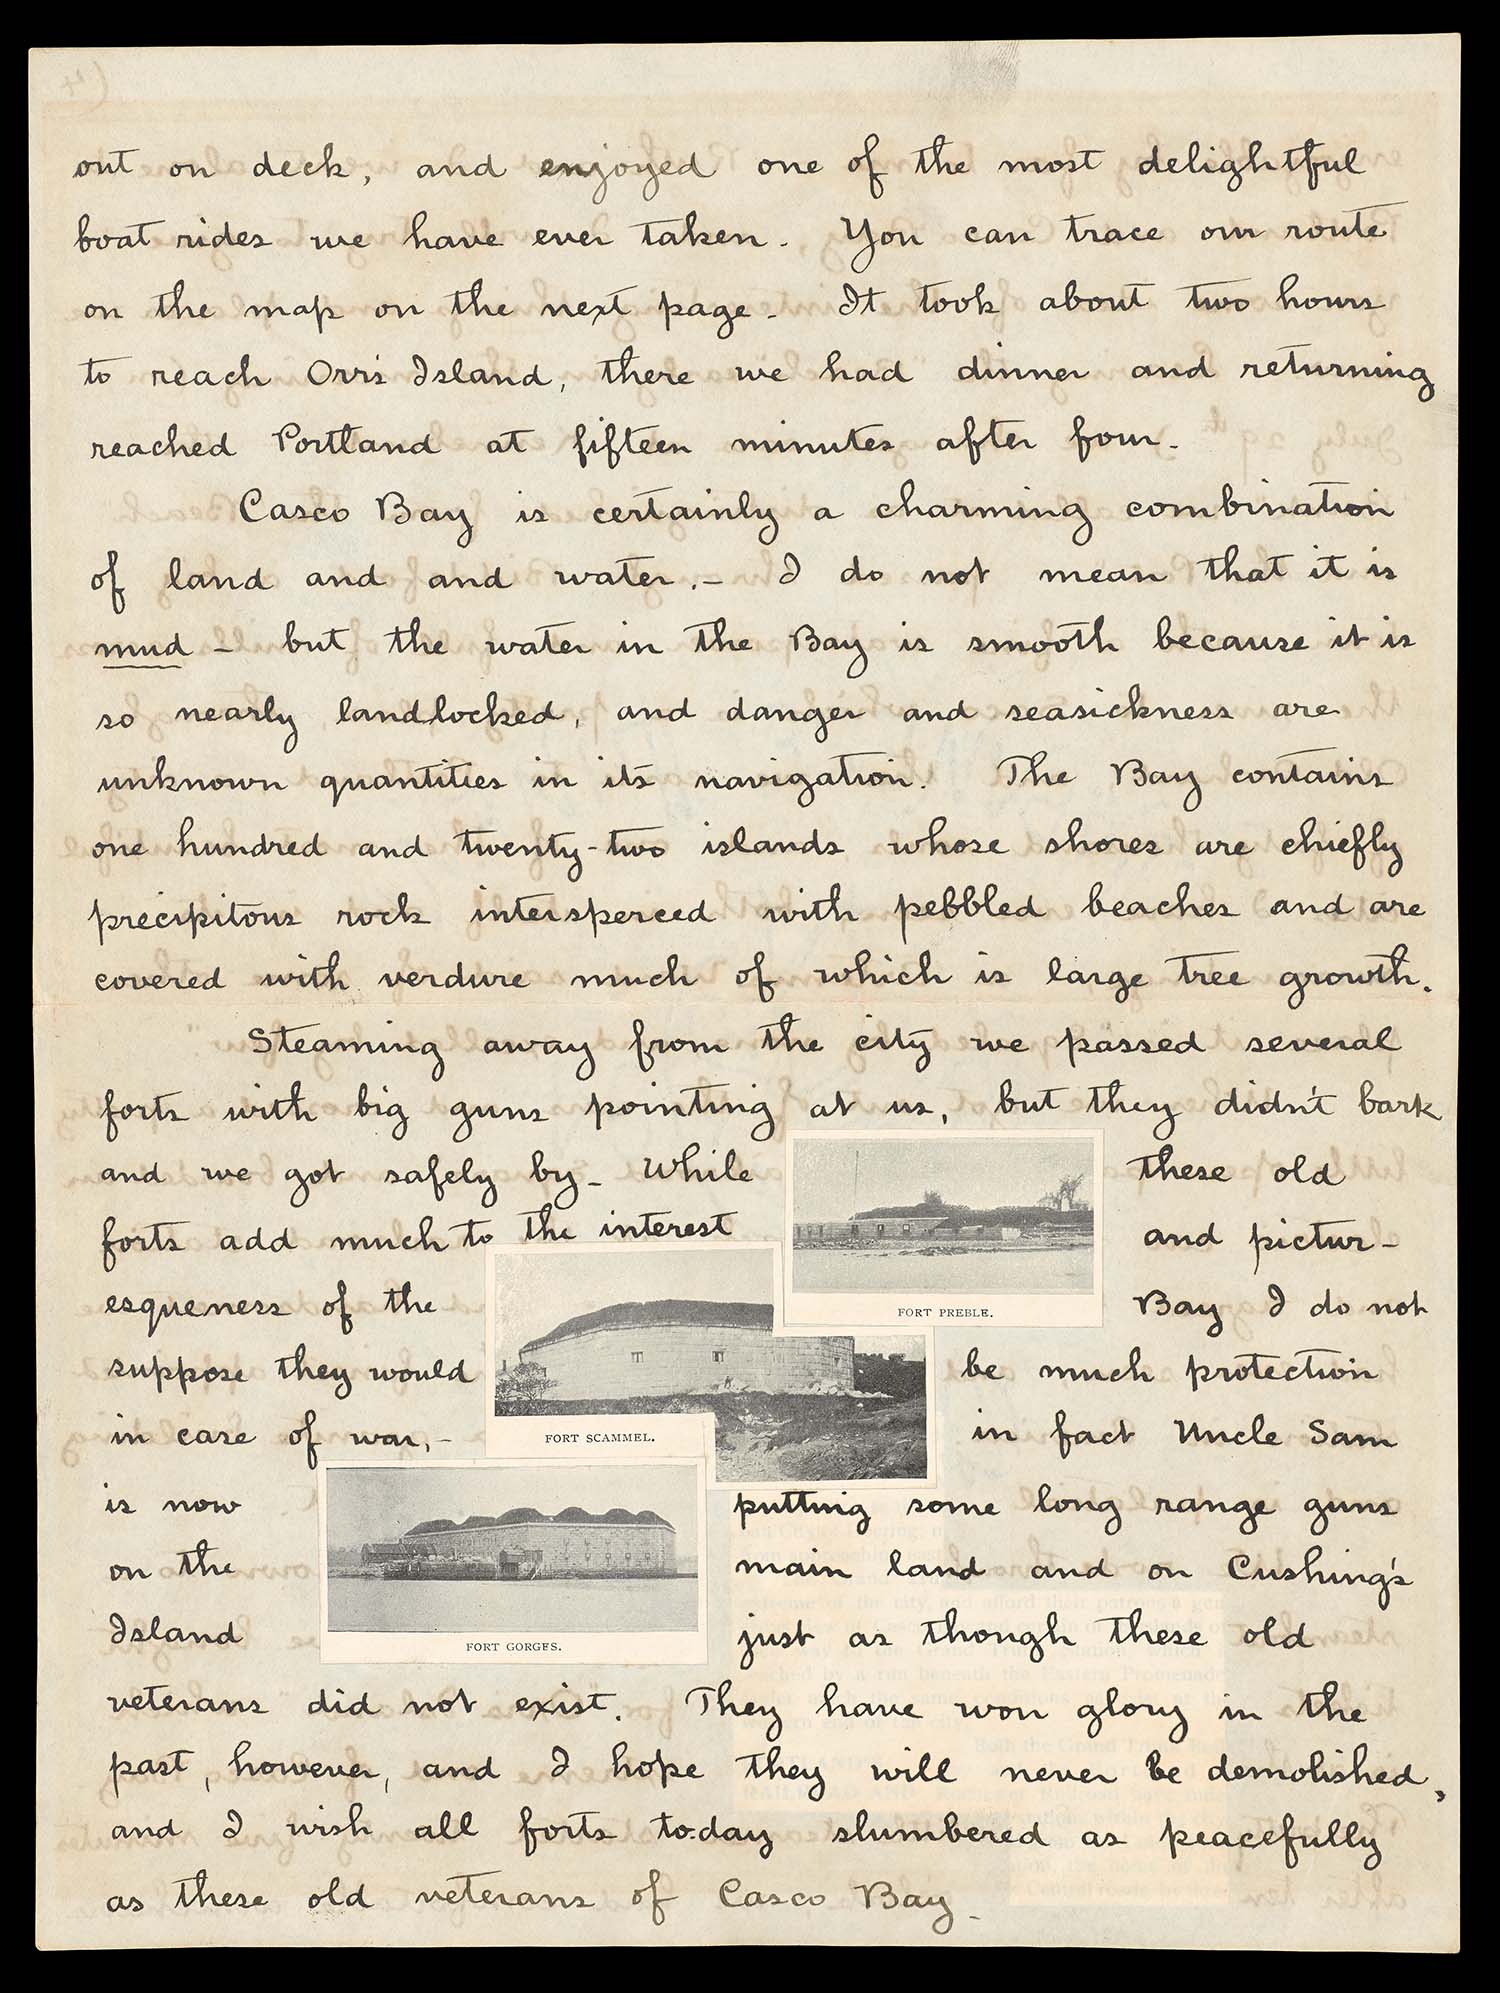 out on deck, and enjoyed one of the most delightful
boat rides we have ever taken. You can trace our route
on the map on the next page. It took about two hours
to reach Orr's Island, there we had dinner and returning
reached Portland at fifteen minutes after four.
Casco Bay is certainly a charming combination
of land and and water. – I do not mean that it is
mud – but the water in the Bay is smooth because it is
so nearly landlocked, and danger and seasickness are
unknown quantities in its navigation. The Bay contains
one hundred and twenty-two islands whose shores are chiefly
precipitous rock intersperced with pebbled beaches and are
covered with verdure much of which is large tree growth.
Steaming away from the city we passed several
forts with big guns pointing at us, but they didn't bark
and we got safely by – While these old
forts add much to the interest and pictur-
esqueness of the Bay I do not
suppose they would be much protection
in case of war, – in fact Uncle Sam
is now putting some long range guns
on the main land and on Cushing's
Island just as though these old
veterans did not exist. They have won glory in the
past, however, and I hope they will never be demolished,
and I wish all forts to-day slumbered as peacefully
as these old veterans of Casco Bay –
FORT PREBLE.
FORT SCAMMEL.
FORT GORGES.